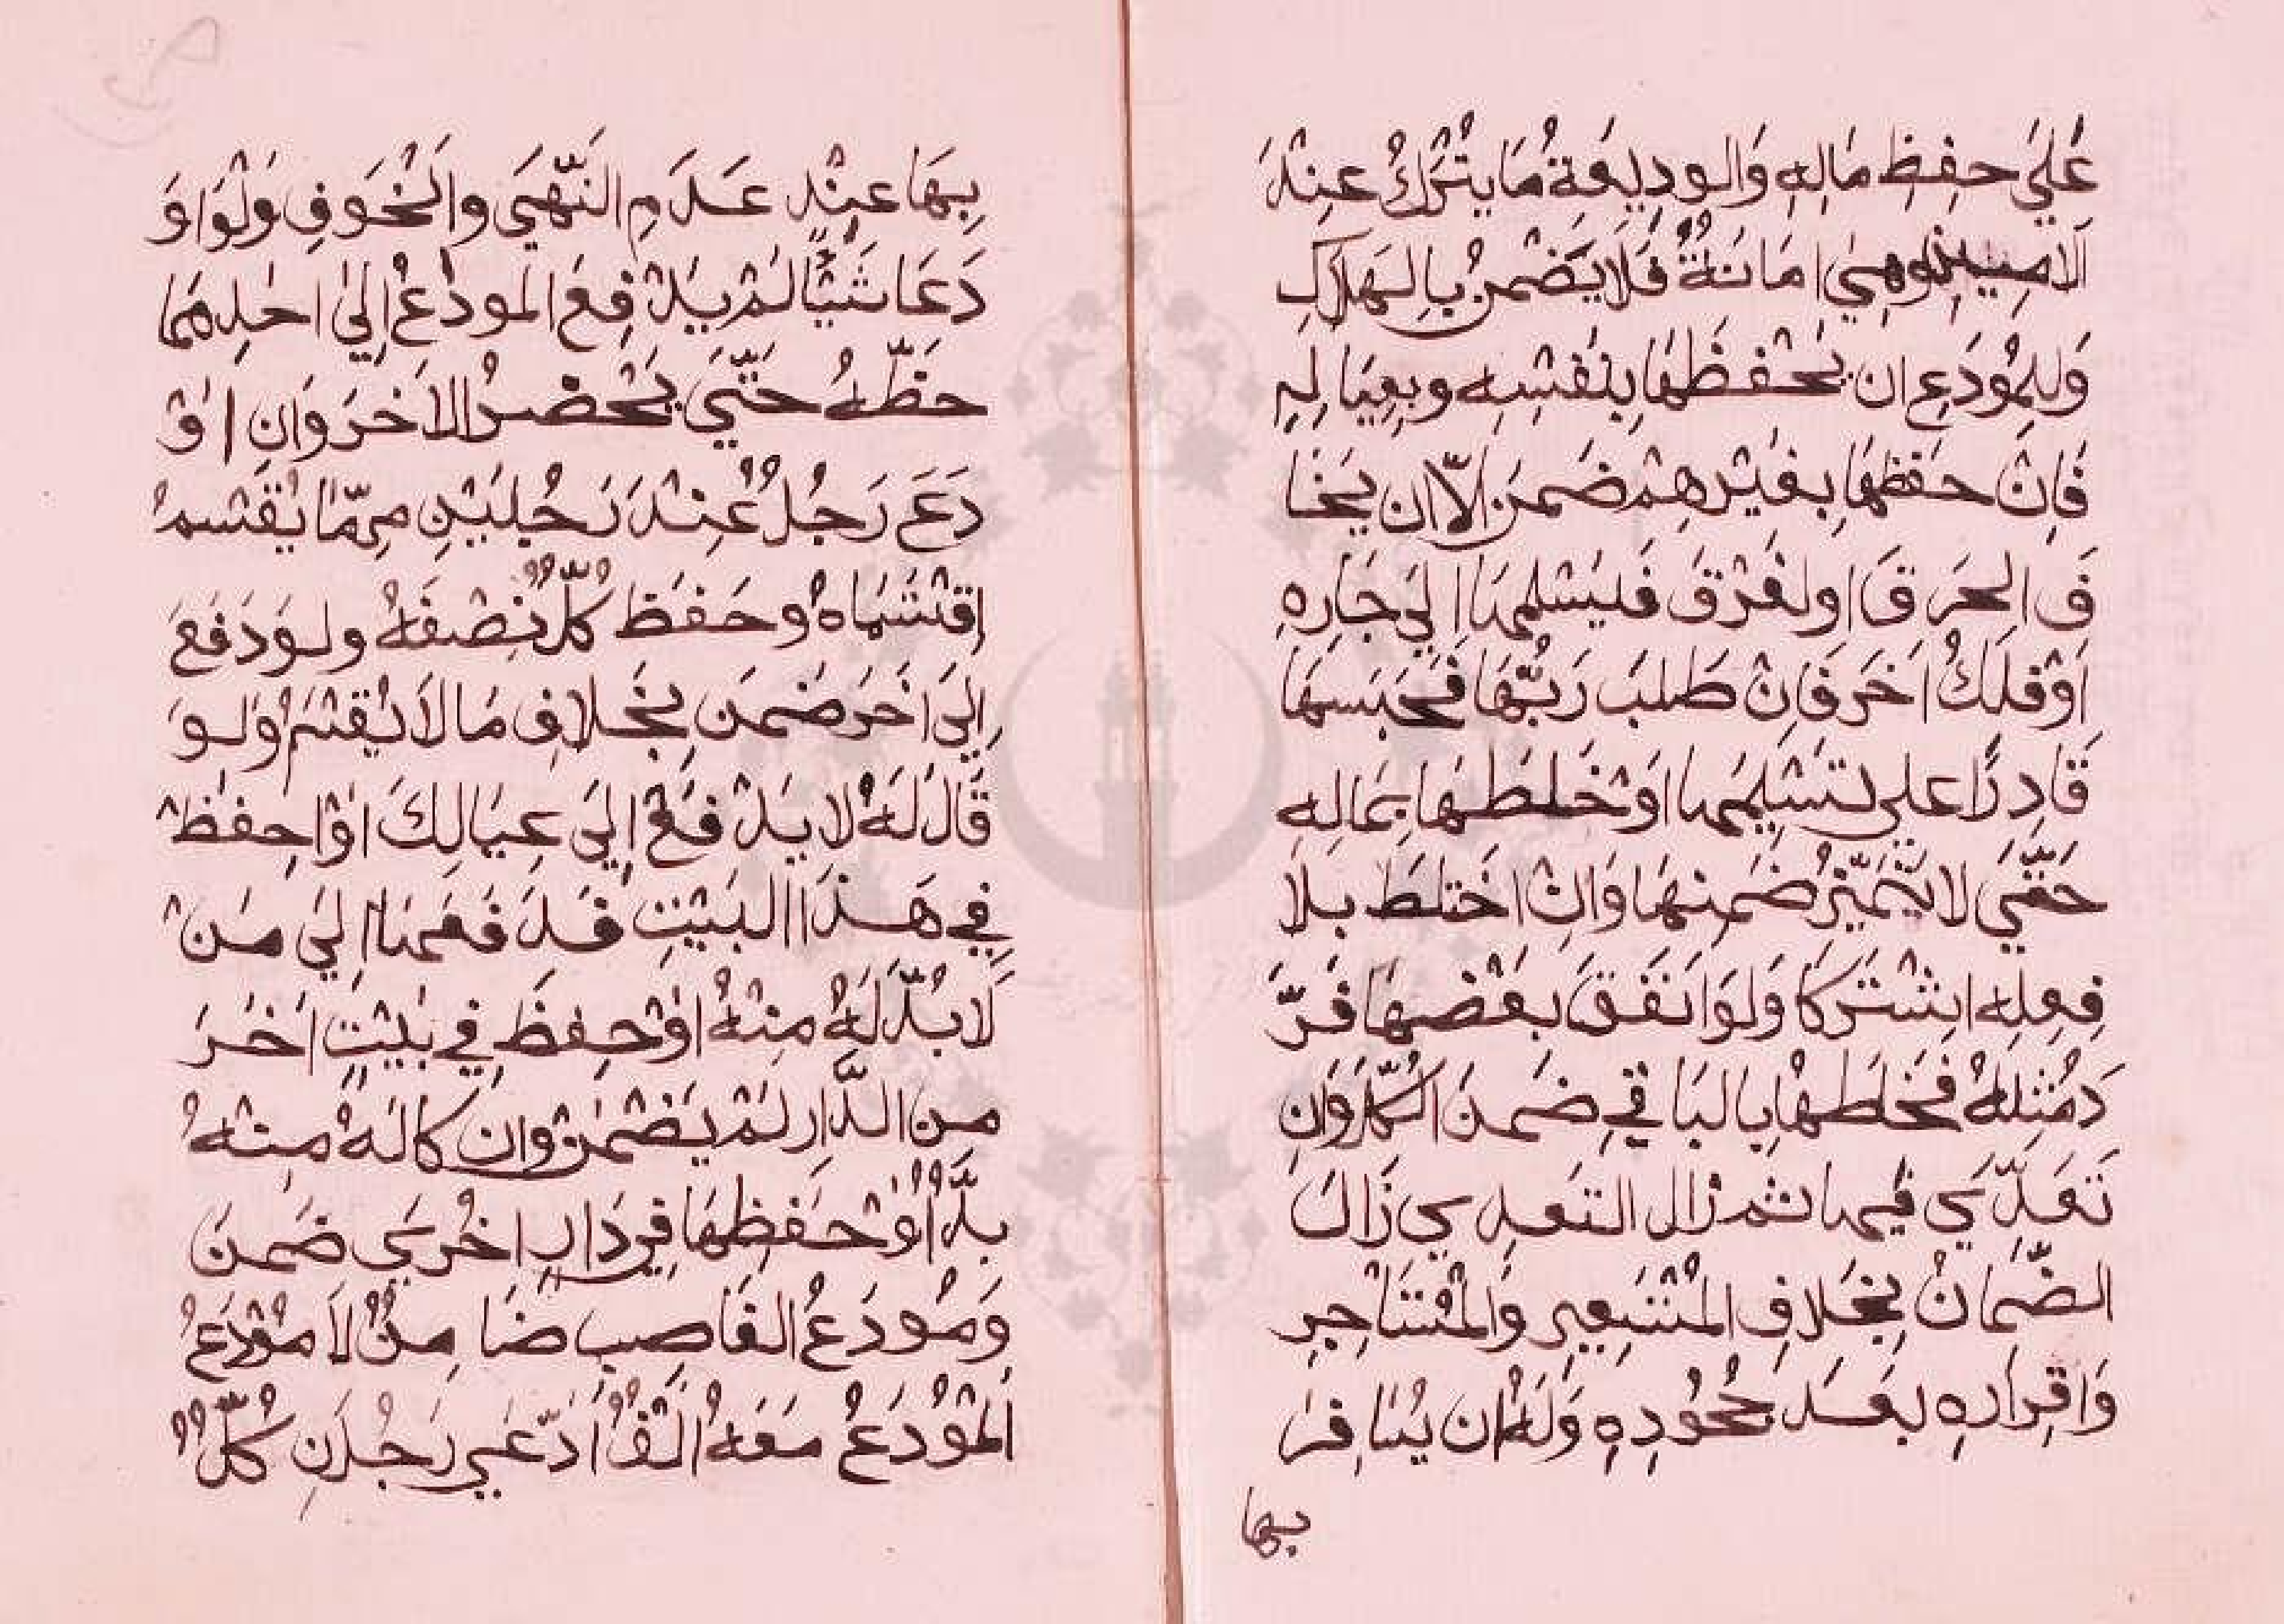 عَلَيَ حفِظِ مَالِهِ وَالوديعَةُ مَا يتْرَكُ عِندَ
الامِينِ وهِيَ امَانَةٌ فَلَا يَضْمنُ بِالهَلَاكِ
وَللمُودَعِ ان يَحْفظَهَا بِنَفْسِهِ وبعِيَالِهِ
فَاِنْ حَفظهَا بغَيْرهِمْ ضَمنَ اِلاّ ان يَخَا
فَ الحَرَقَ اولغَرْقَ فليَسْلمهَا اِلَيَ جَارِهِ
اَوْ فلَكُ اخَرَ فَاِنْ طَلبَ رَبُّهَا فَحَبَسهَا
قَادِرًا علي تسْلِيمهَا اَوْ خَلطَهَا بمَالِهِ
حَتّيَ لا يتَمَيّزُ ضَمِنهَا وَاِنْ اخَتلطَ بلَا
فِعلِهِ اشْتَركَا وَلوَ انَفَقَ بَعْضهَا فَرَّ
دَ مُثِلهُ فَخَلَطهَا بِالبَاقيِ ضَمنَ الكُلّ وَانِ
تَعَدّيَ فيها ثم زال التعدي زَالَ
الضّمَانُ بِخَلافِ المُسْتَعِيرِ وَالمُسْتَاجِرِ
وَاقِرارهِ بعَدَ جحُودِهِ وَلهُ ان يُسَافرَ
بها
بِهَا عِنْدِ عَدَمِ النّهَيَ والَخَوفِ وَلَوْاوَ
دَعَا شَيْئًا لمْ يَدْفِعَ المودَعُ اِليَ احَدِهمَا
حظّهُ حتّيَ يَحْضرُ الاَخرَ وَانِ اوْ
دَعَ رَجُلٌ عِنْدَ رَجُليَنِ مِمّا يُقْسمُ
اِقتَسَمَاهُ وحَفظَ كُلٌّ نِصْفهُ ولوَدَفعَ
اِلَيَ اخَرَ ضَمنَ بِخَلافِ مَا لَا يُقسَمُ وَلوَ
قَالَ لَهُ لا يَدْفَعْ اِليَ عِيَالِكَ اوْ احِفظْ
فِي هَذَا البَيْتِ فَدَ فَعهَا اِلَيَ مَنْ
لَا بُدّ لَهُ مِنهُ اوْ حفِظَ فِي بَيْتٍ اخَرَ
من الدّارِ لمْ يَضْمَنْ وان كَا لَهُ مِنْهُ
بدٌّ اوْ حَفِظهَا فِي دَارِ اخُريَ ضَمنَ
وَمُودَعُ الغَاصِبِ ضَامِنٌ لَا مُوْدَعُ
المَوْدَعُ مَعَهُ الَفٌ ادّعَي رَجُلَانِ كُلٌّ